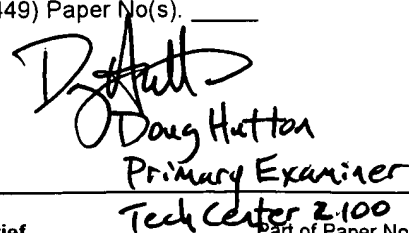 449) Paper No(s). ______
Doug Hutton
Primary Examiner
Tech Center 2100
rief
Part of Paper No